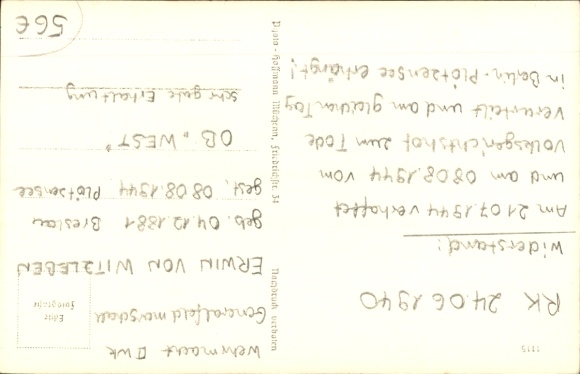 1115
RK 24.06.1940
Widerstand:
Am 21.07.1944 verhaftet
und am 08.08.1944 vom
Volksgerichtshof zum Tode
verurteilt und am gleichen Tag
in Berlin-Plötzensee erhängt!
Nachdruck verboten
Photo-Hoffmann München, Friedrichstr. 34
Wehrmacht II Wk
Generalfeldmarschall
ERWIN VON WITZLEBEN
geb. 04.12.1881 Breslau
gest. 08.08.1944 Plötzensee
OB "WEST"
sehr gute Erhaltung
Echte
Fotografie
56€